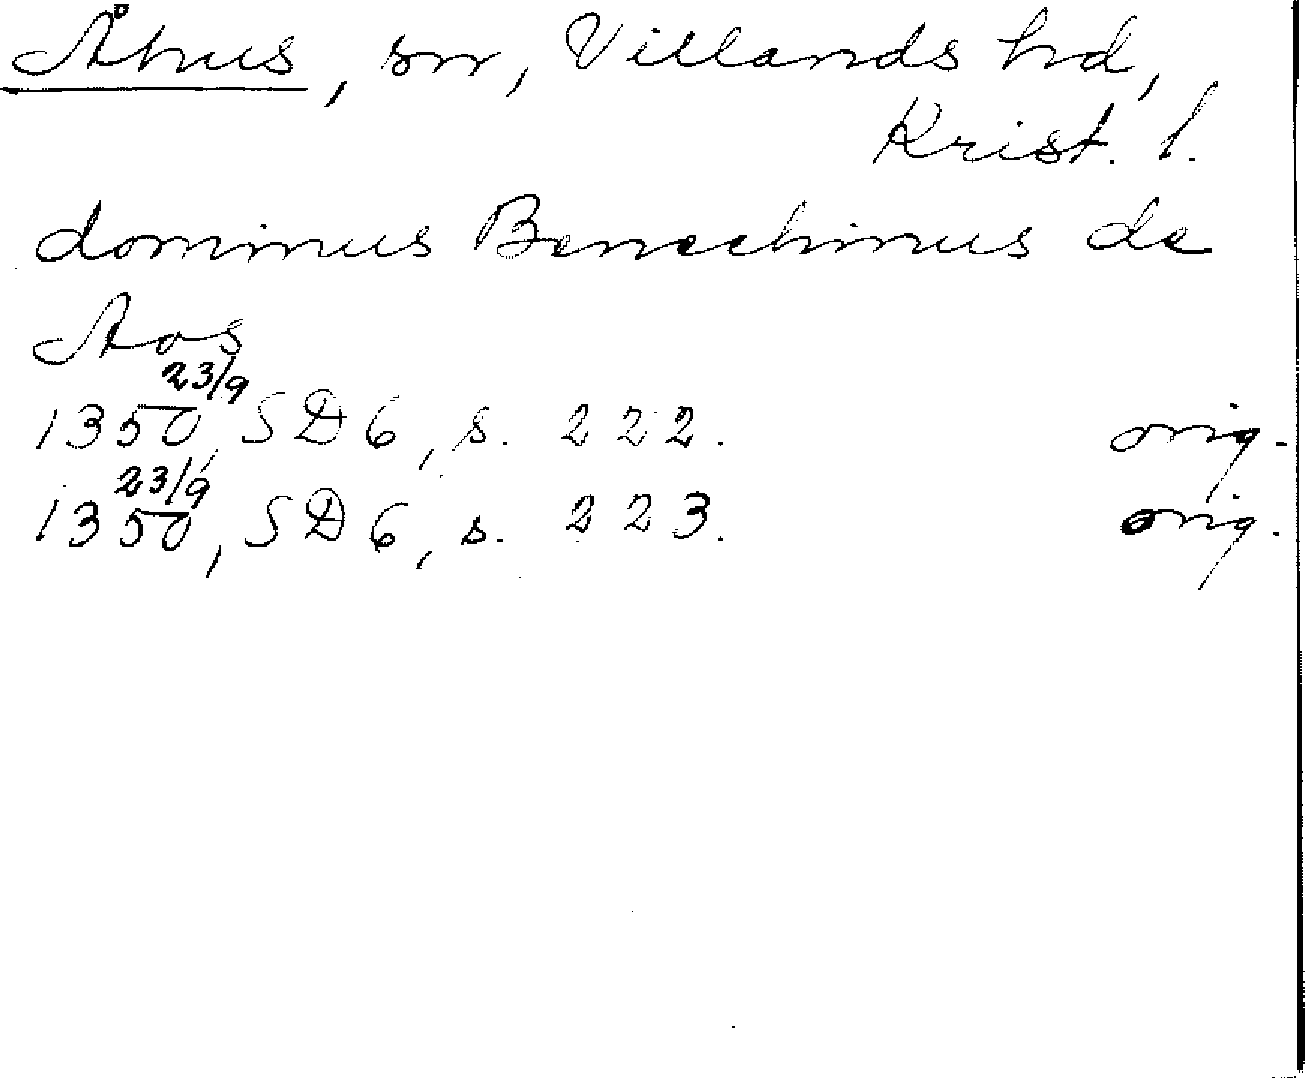 Åhus, sn, Villands hd,
Krist. l.
dominus Benechinus de
Aos
1350 23/9, SD 6, s. 222. orig.
1350 23/9, SD 6, s. 223. orig.